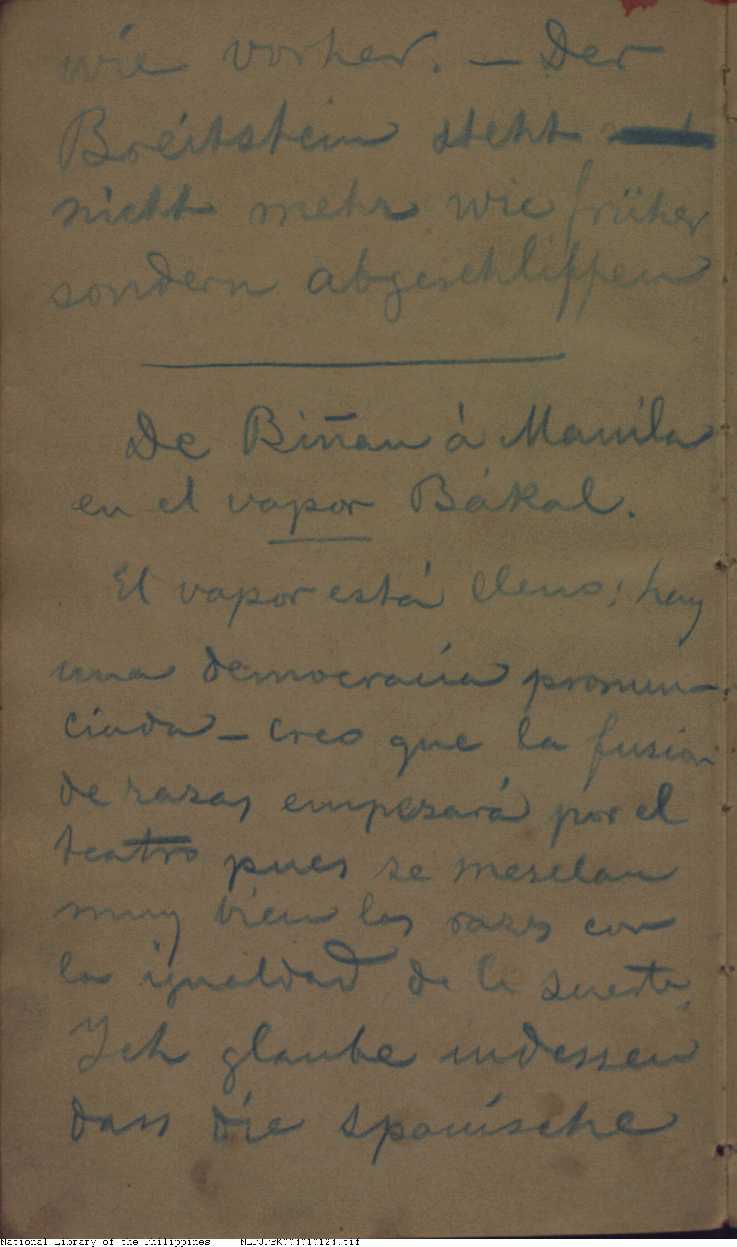 wie vorher. — Der
Breitstein steht
nicht mehr wie früher
sondern abgeschliffen
De Biñan á Manila
en el vapor Bákal.
El vapor está lleno; hay
una democracia pronun-
ciada — creo que la fusion
de razas empezará por el
teatro pues se mesclan
muy bien las razas con
la igualdad de la suerte.
Ich glaube indessen
dass die spanische
National Library of the Philippines